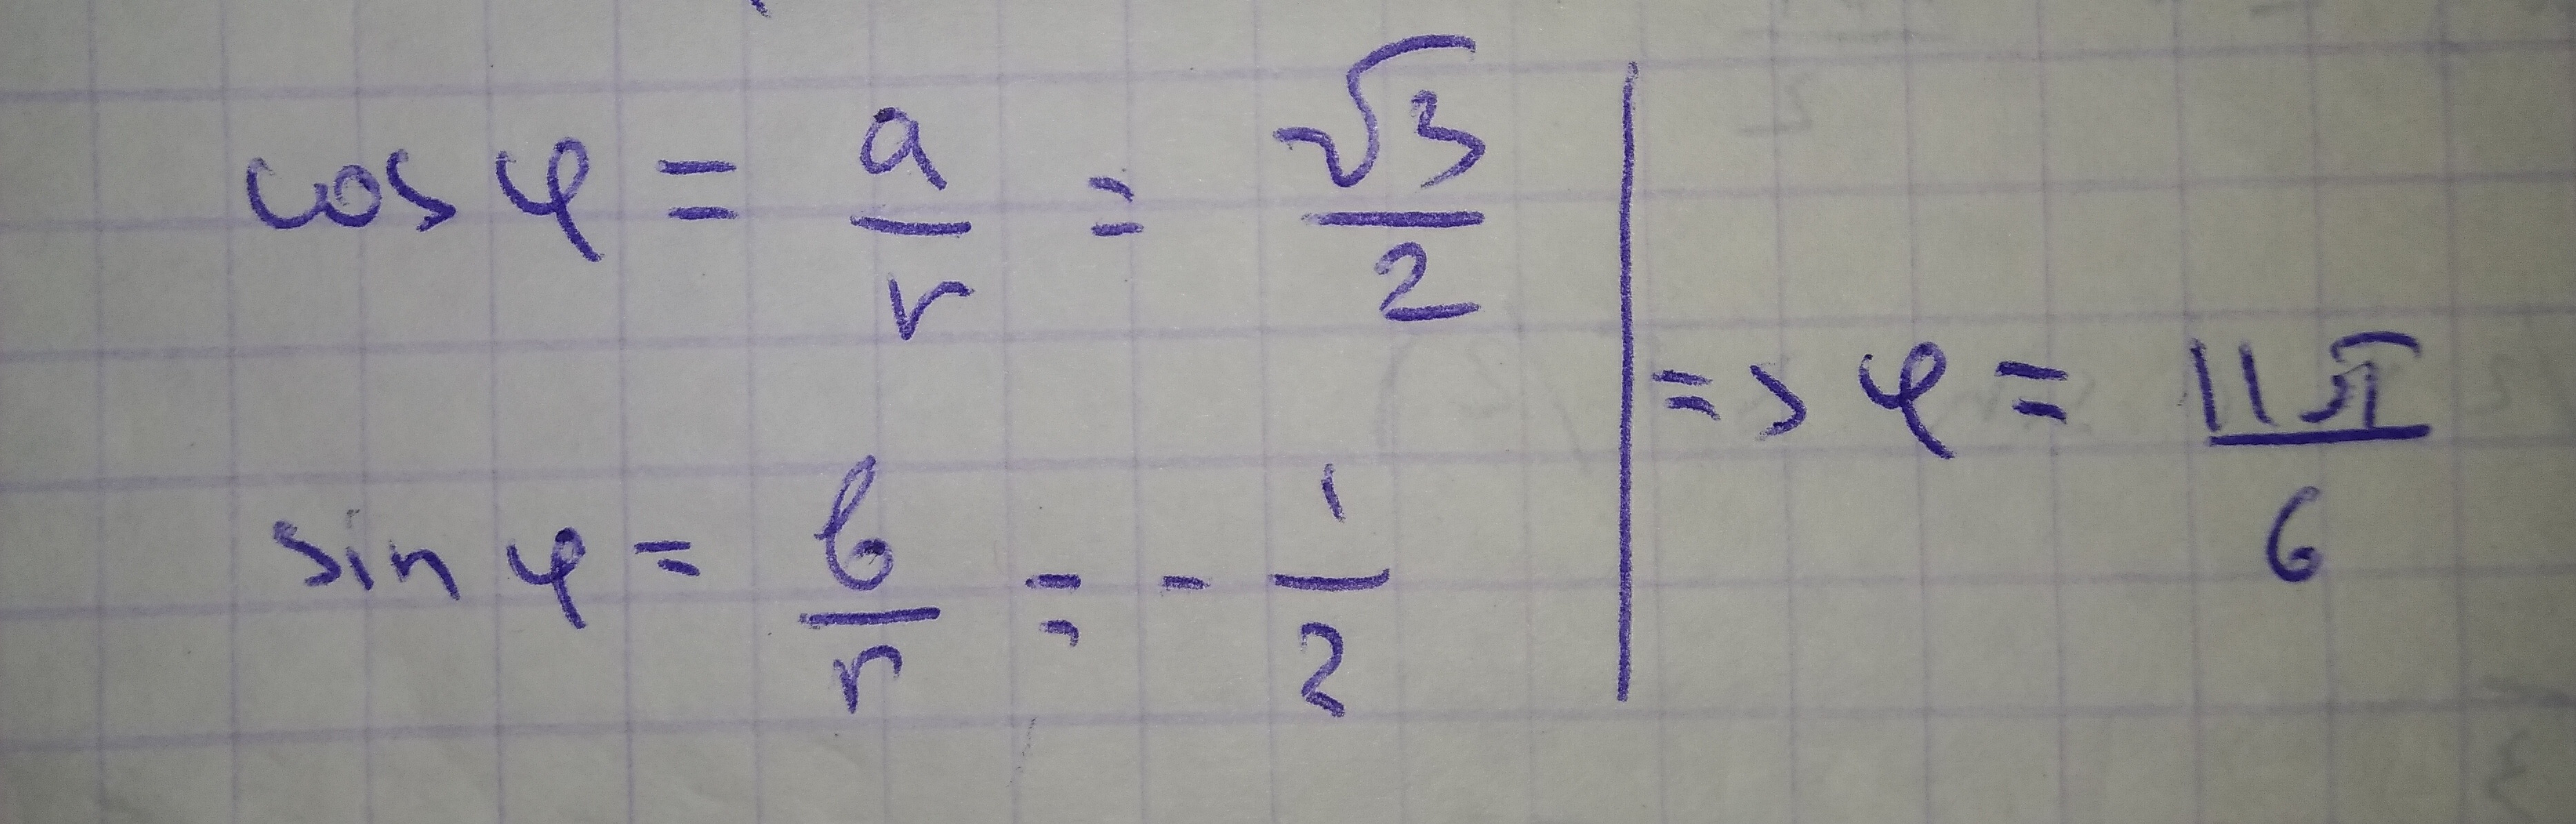 cos φ = a/r = √3/2
sin φ = b/r = - 1/2
=> φ = 11π/6